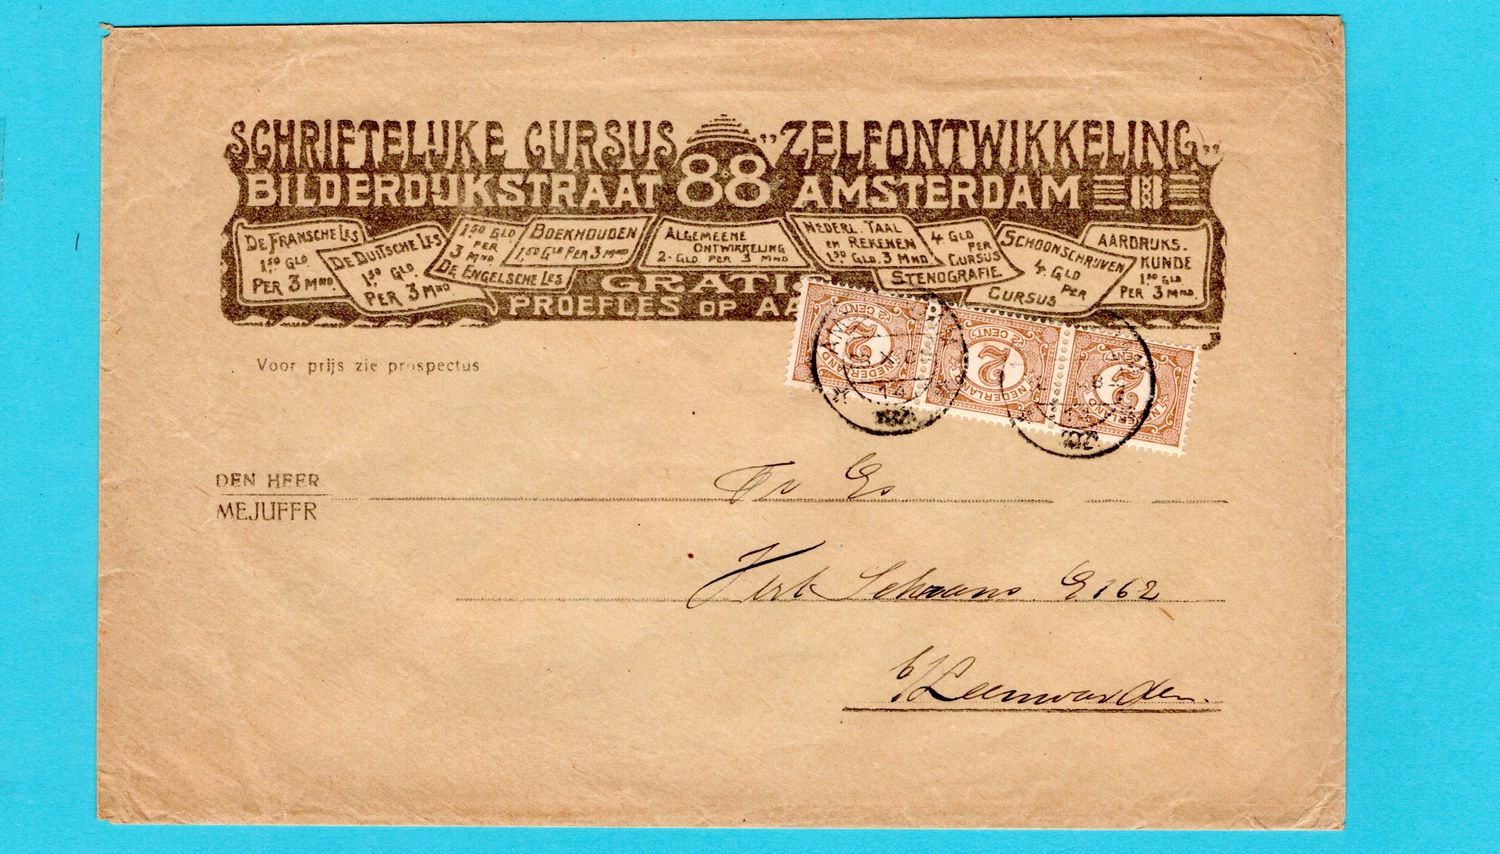 SCHRIFTELIJKE CURSUS „ZELFONTWIKKELING„
BILDERDIJKSTRAAT 88 AMSTERDAM
DE FRANSCHE LES
1.50 GLD
PER 3 MND
DE DUITSCHE LES
1.50 GLD.
PER 3 MND
1.50 GLD
PER
3 MND
DE ENGELSCHE LES
BOEKHOUDEN
1.50 GLD PER 3 MND
ALGEMEENE
ONTWIKKELING
2.- GLD PER 3 MND
NEDERL. TAAL
EN REKENEN
1.50 GLD. 3 MND
4 GLD
PER
CURSUS
STENOGRAFIE
SCHOONSCHRIJVEN
4. GLD
PER
CURSUS
AARDRIJKS-
KUNDE
1.50 GLD
PER 3 MND.
GRATIS
PROEFLES OP AA
2½ CENT
NEDERLAND
2½ CENT
NEDERLAND
2½ CENT
NEDERLAND
Voor prijs zie prospectus
DEN HEER
MEJUFFR
Schrans 162
b/Leeuwarden.